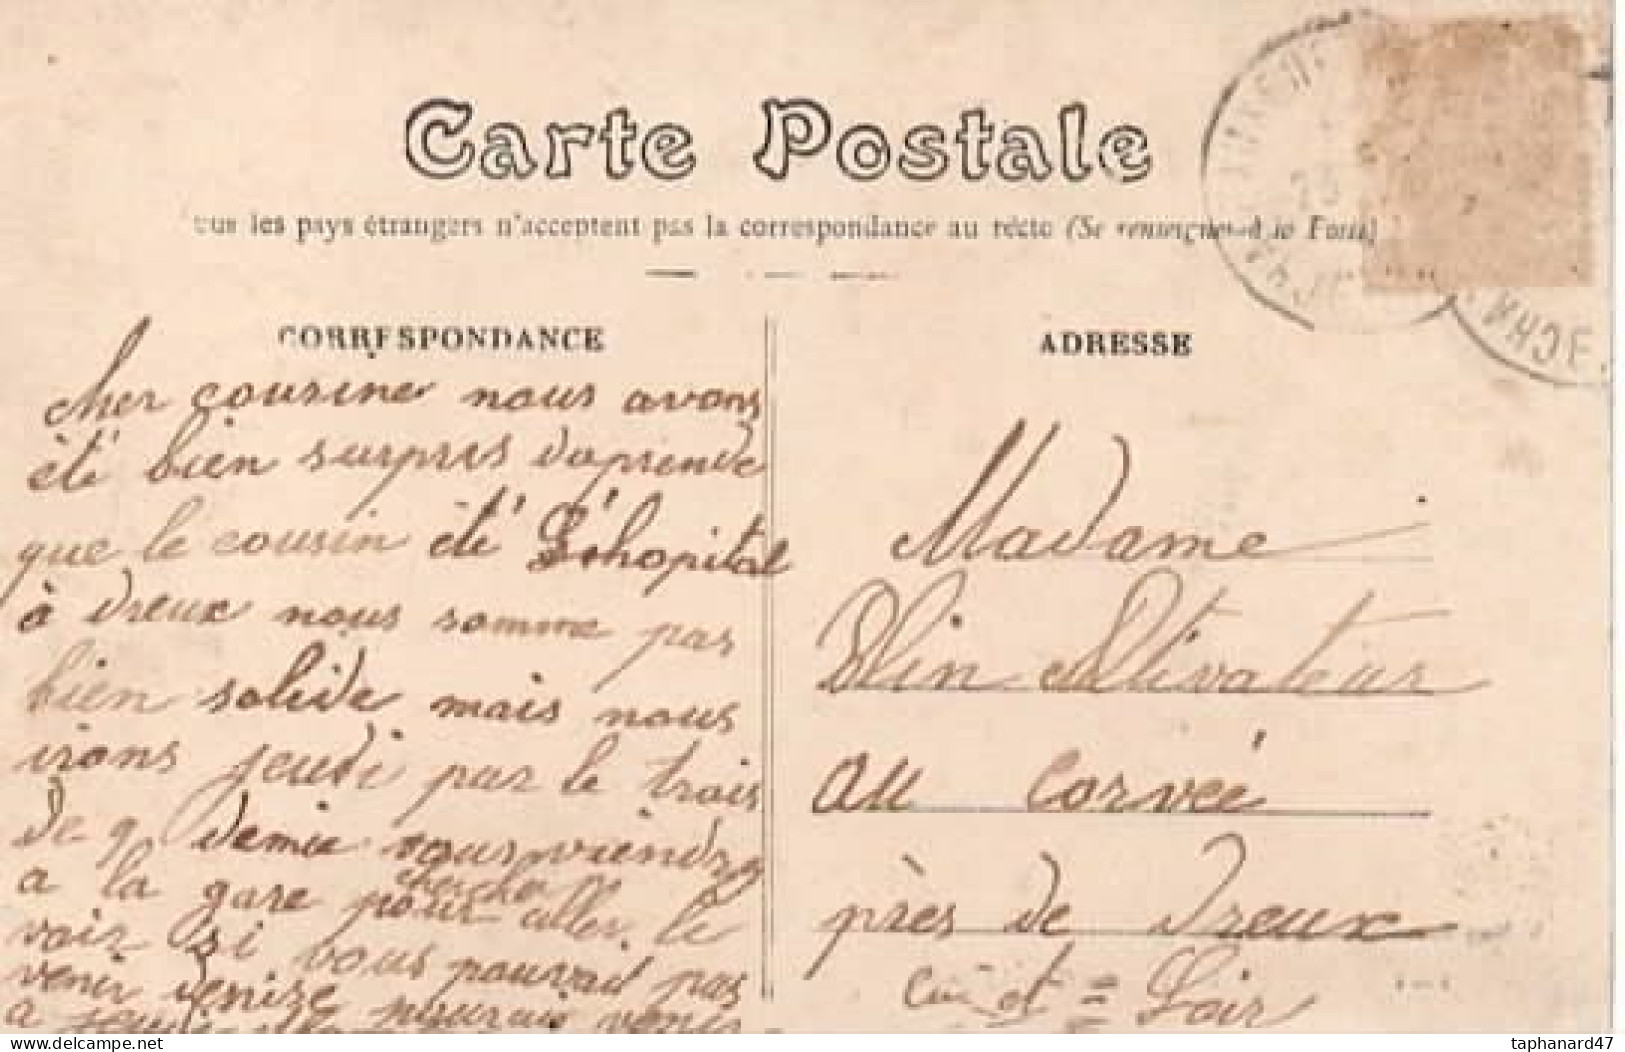 Carte Postale
tous les pays étrangers n'acceptent pas la correspondance au recto (Se renseigner à la Poste)
CORRESPONDANCE
cher cousine nous avons
èté bien surpris daprende
que le cousin èté à L'hopital
à dreux nous somme pas
bien solide mais nous
irons jeudi par le trais
de 9 demie vous viendre
a la gare pour aller chercher le
voir si vous pouvad pas
venir venire
a jeudi pourais venir
ADRESSE
Madame
Blin Cultivateur
au Corvée
près de Dreux
Eure et = Loir
delcampe.net
taphanard47